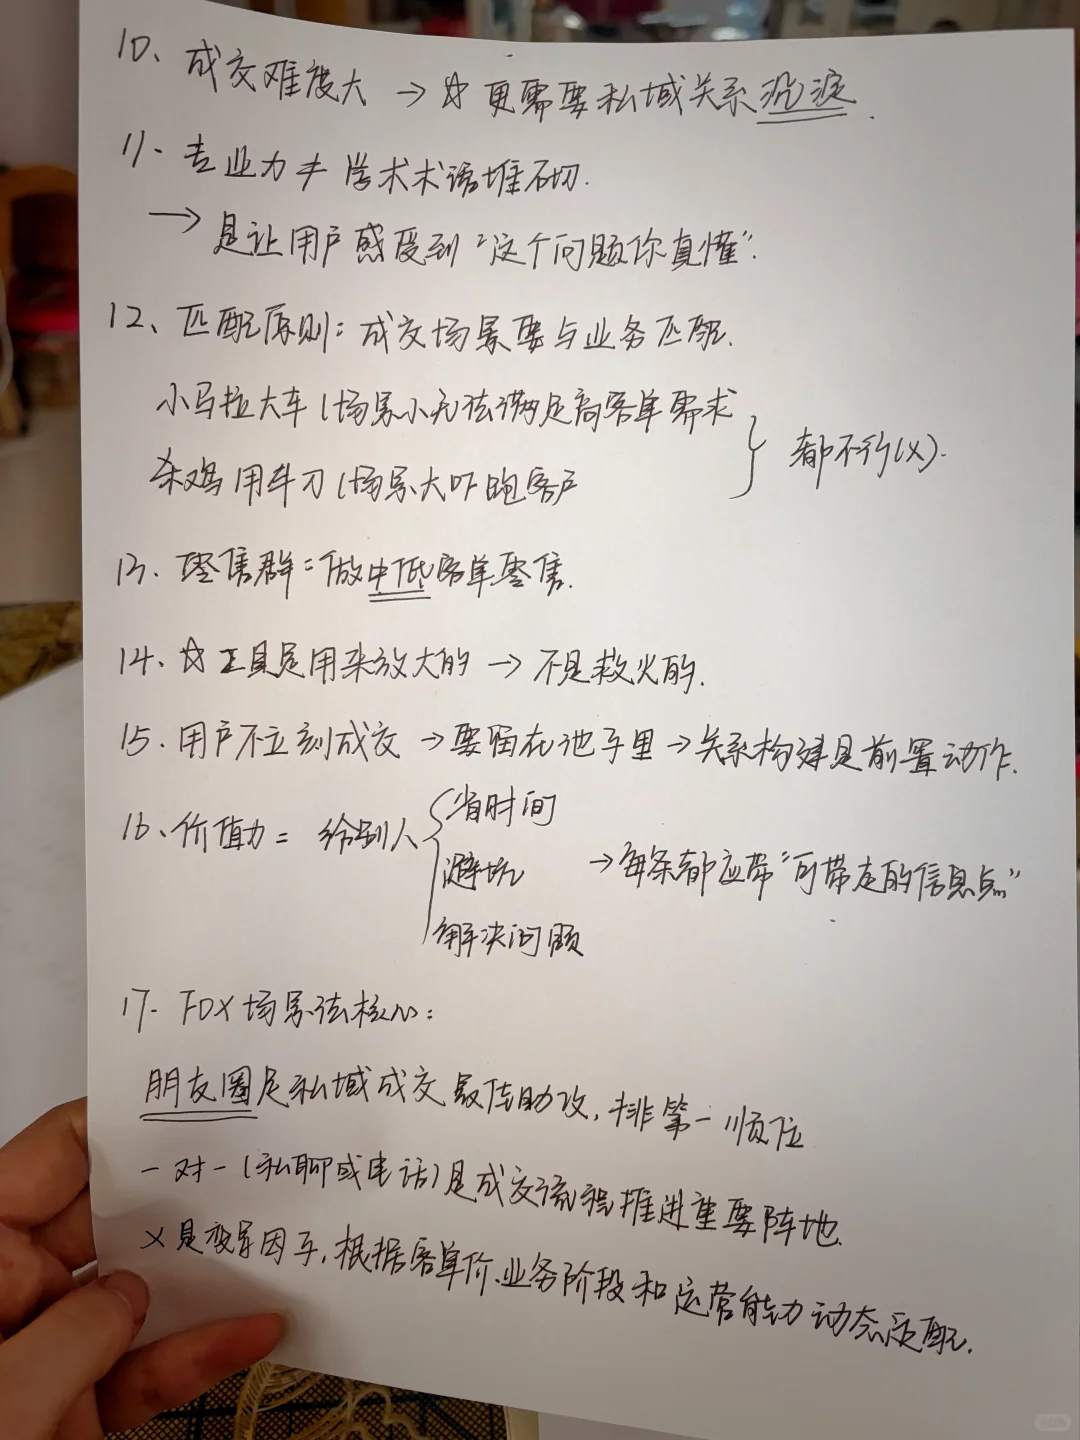 10、成交难度大 → ☆ 更需要私域关系沉淀.
11. 专业力 ≠ 学术术语堆砌.
→ 是让用户感受到“这个问题你真懂”.
12、匹配原则: 成交场景要与业务匹配.
小马拉大车(场景小无法满足高客单需求
杀鸡用牛刀(场景大吓跑客户
} 都不行(X).
13. 零售群: 做中低客单零售.
14、☆ 工具是用来放大的 → 不是救火的.
15. 用户不立刻成交 → 要留在池子里 → 关系构建是前置动作.
16、价值力 = 给别人 { 省时间
避坑 → 每条都应带“可带走的信息点”
解决问题
17. FDX 场景法核心:
朋友圈是私域成交最佳助攻, 排第一顺位
一对一(私聊或电话)是成交流程推进重要阵地.
X是变量因子, 根据客单价、业务阶段和运营能力动态适配.
小红书